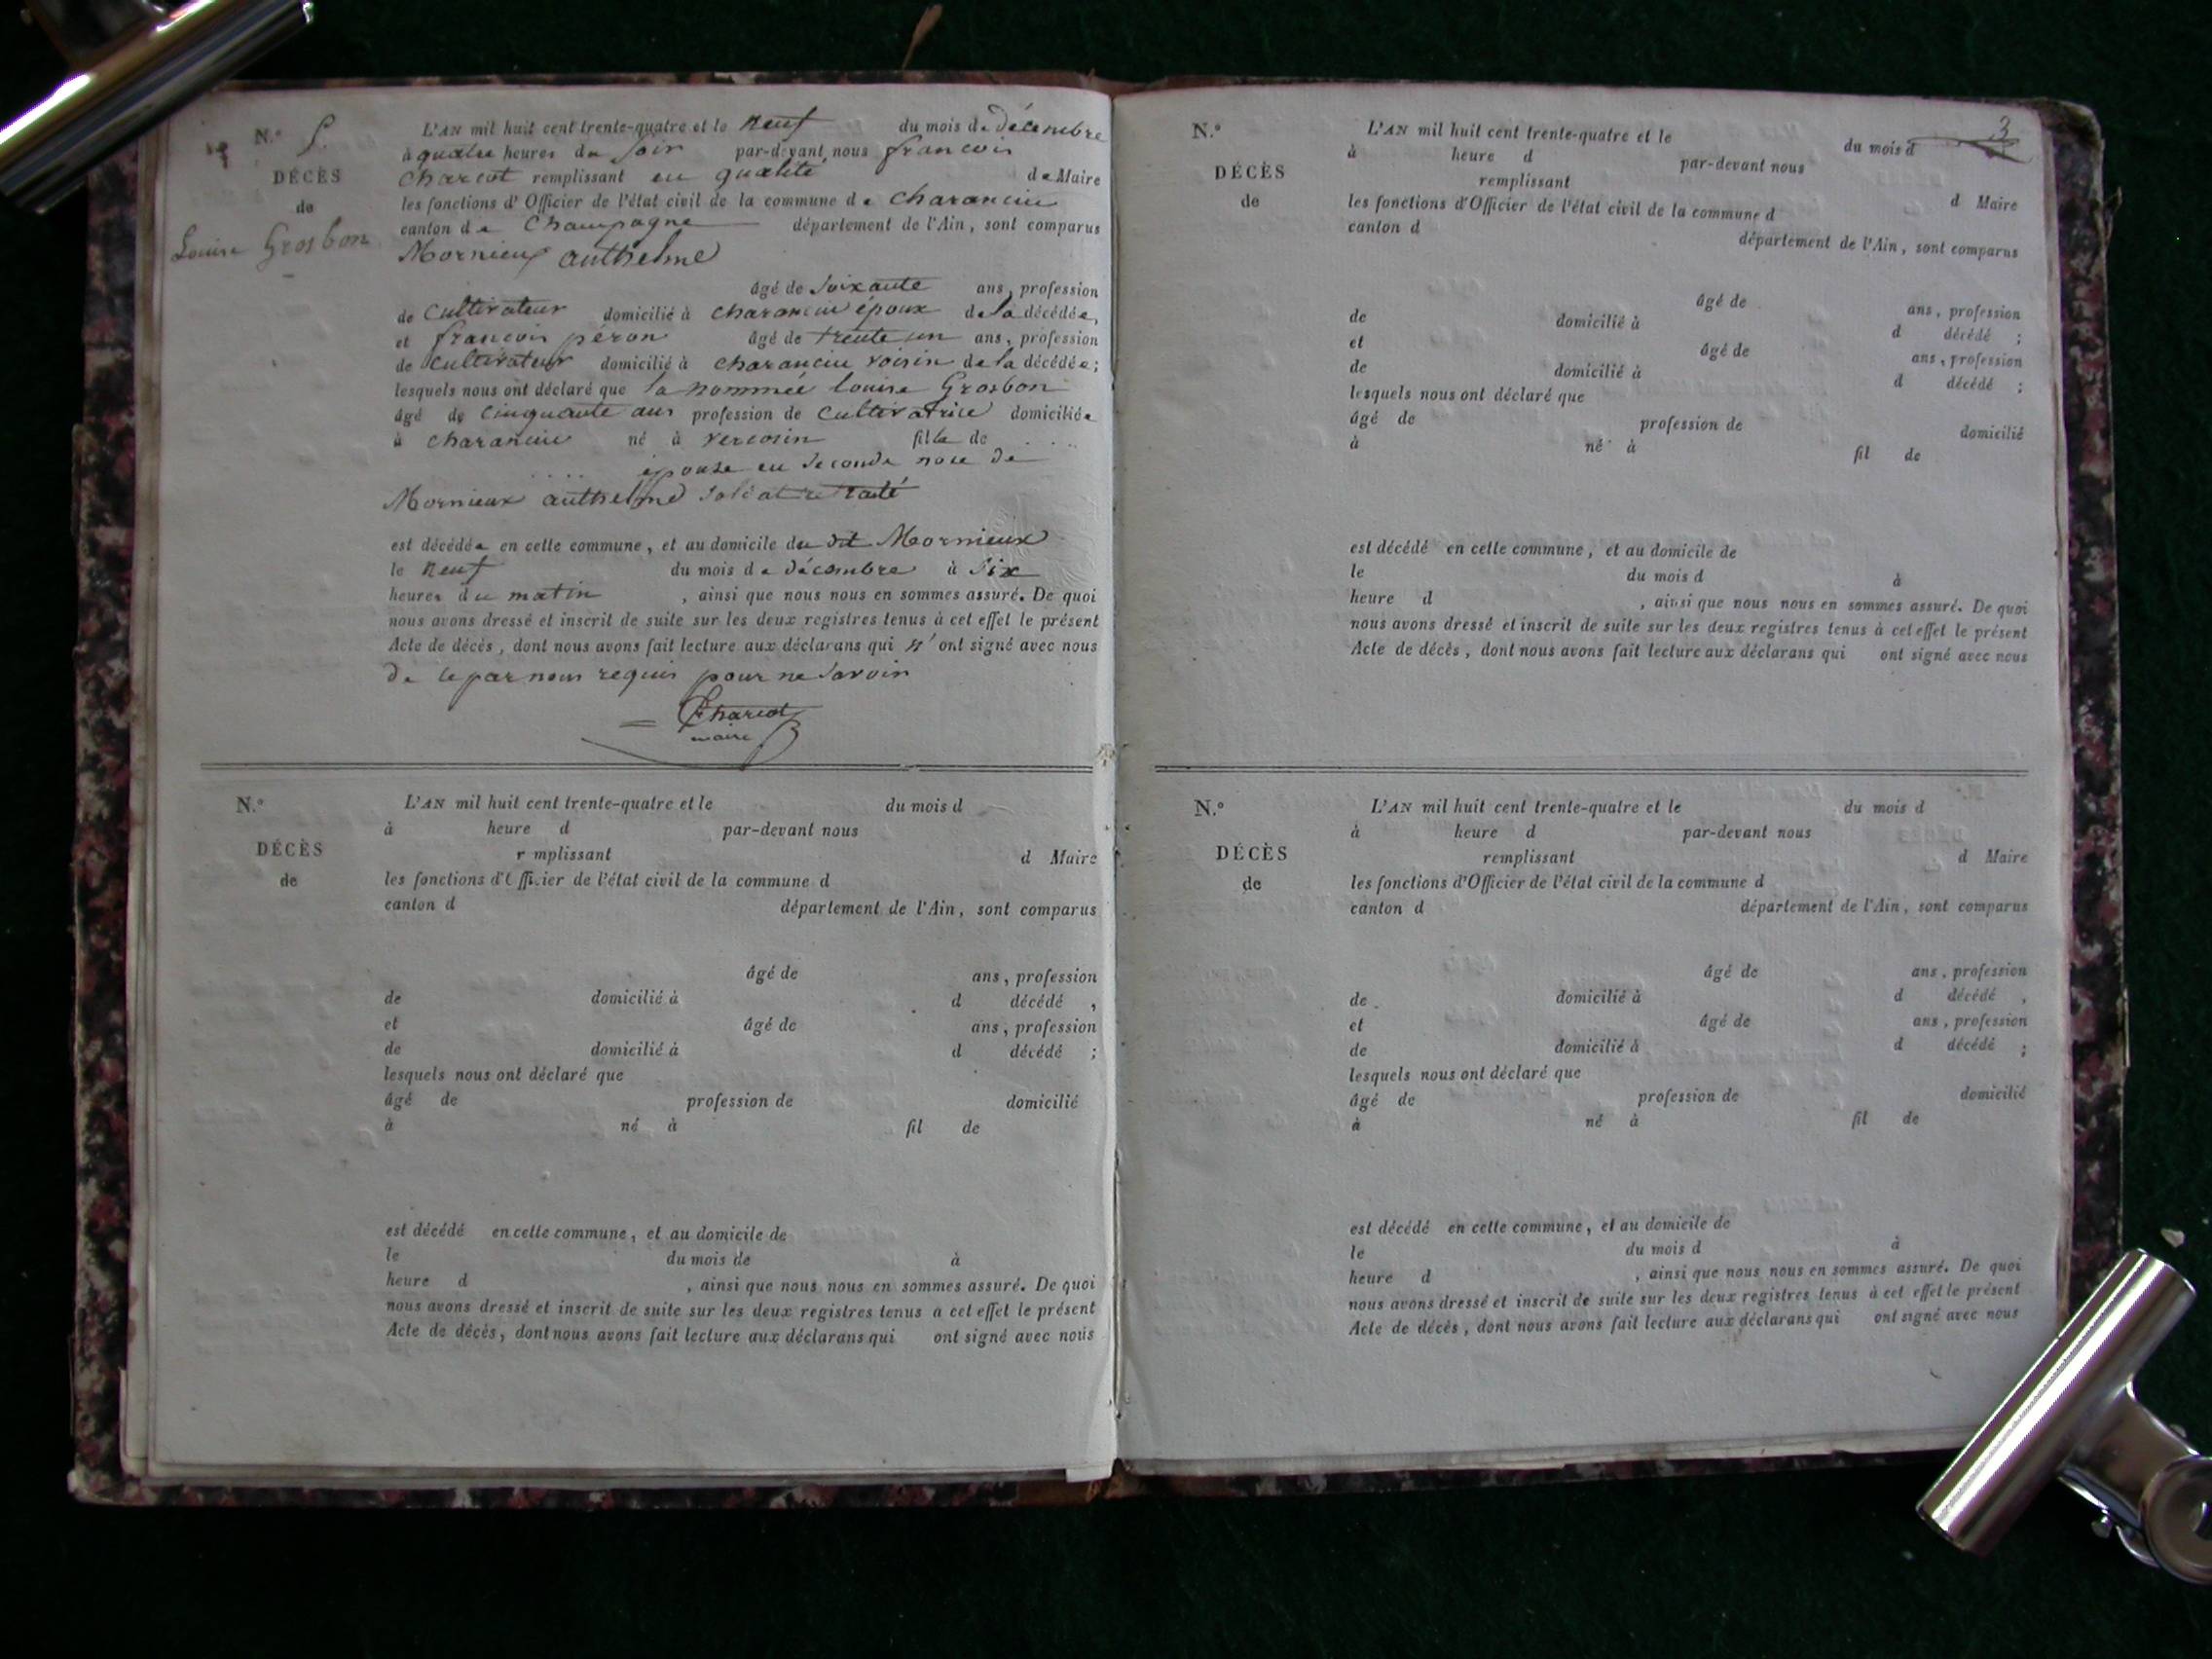 N.º 5.
DÉCÈS
de
Louise Grosbon
L'AN mil huit cent trente-quatre et le neuf du mois de décembre
à quatre heures du soir par-devant nous francois
Charcot remplissant en qualité de Maire
les fonctions d'Officier de l'état civil de la commune de charancin
canton de Champagne département de l'Ain, sont comparus
Mornieux anthelme
âgé de soixante ans, profession
de cultivateur domicilié à charancin époux de la décédée,
et francois péron âgé de trente un ans, profession
de cultivateur domicilié à charancin voisin de la décédée;
lesquels nous ont déclaré que la nommée louise Grosbon
âgé de cinquante ans profession de cultivatrice domiciliée
à charancin né à vercosin fille de . . . .
. . . . épouse en seconde nose de
Mornieux anthelme soldat retraité
est décédée en cette commune, et au domicile du dit Mornieux
le neuf du mois de décembre à six
heures du matin , ainsi que nous nous en sommes assuré. De quoi
nous avons dressé et inscrit de suite sur les deux registres tenus à cet effet le présent
Acte de décès, dont nous avons fait lecture aux déclarans qui n'ont signé avec nous
de ce par nous requis pour ne savoir
Charcot
maire
N.º
DÉCÈS
de
L'AN mil huit cent trente-quatre et le du mois d
à heure d par-devant nous
r mplissant d Maire
les fonctions d'Officier de l'état civil de la commune d
canton d département de l'Ain, sont comparus
âgé de ans, profession
de domicilié à d décédé ,
et âgé de ans, profession
de domicilié à d décédé ;
lesquels nous ont déclaré que
âgé de profession de domicilié
à né à fil de
est décédé en cette commune, et au domicile de
le du mois de à
heure d , ainsi que nous nous en sommes assuré. De quoi
nous avons dressé et inscrit de suite sur les deux registres tenus à cet effet le présent
Acte de décès, dont nous avons fait lecture aux déclarans qui ont signé avec nous
3
N.º
DÉCÈS
de
L'AN mil huit cent trente-quatre et le du mois d
à heure d par-devant nous
remplissant d Maire
les fonctions d'Officier de l'état civil de la commune d
canton d département de l'Ain, sont comparus
âgé de ans, profession
de domicilié à d décédé ;
et âgé de ans, profession
de domicilié à d décédé ;
lesquels nous ont déclaré que
âgé de profession de domicilié
à né à fil de
est décédé en cette commune, et au domicile de
le du mois d à
heure d , ainsi que nous nous en sommes assuré. De quoi
nous avons dressé et inscrit de suite sur les deux registres tenus à cet effet le présent
Acte de décès, dont nous avons fait lecture aux déclarans qui ont signé avec nous
N.º
DÉCÈS
de
L'AN mil huit cent trente-quatre et le du mois d
à heure d par-devant nous
remplissant d Maire
les fonctions d'Officier de l'état civil de la commune d
canton d département de l'Ain, sont comparus
âgé de ans, profession
de domicilié à d décédé ,
et âgé de ans, profession
de domicilié à d décédé ;
lesquels nous ont déclaré que
âgé de profession de domicilié
à né à fil de
est décédé en cette commune, et au domicile de
le du mois d à
heure d , ainsi que nous nous en sommes assuré. De quoi
nous avons dressé et inscrit de suite sur les deux registres tenus à cet effet le présent
Acte de décès, dont nous avons fait lecture aux déclarans qui ont signé avec nous